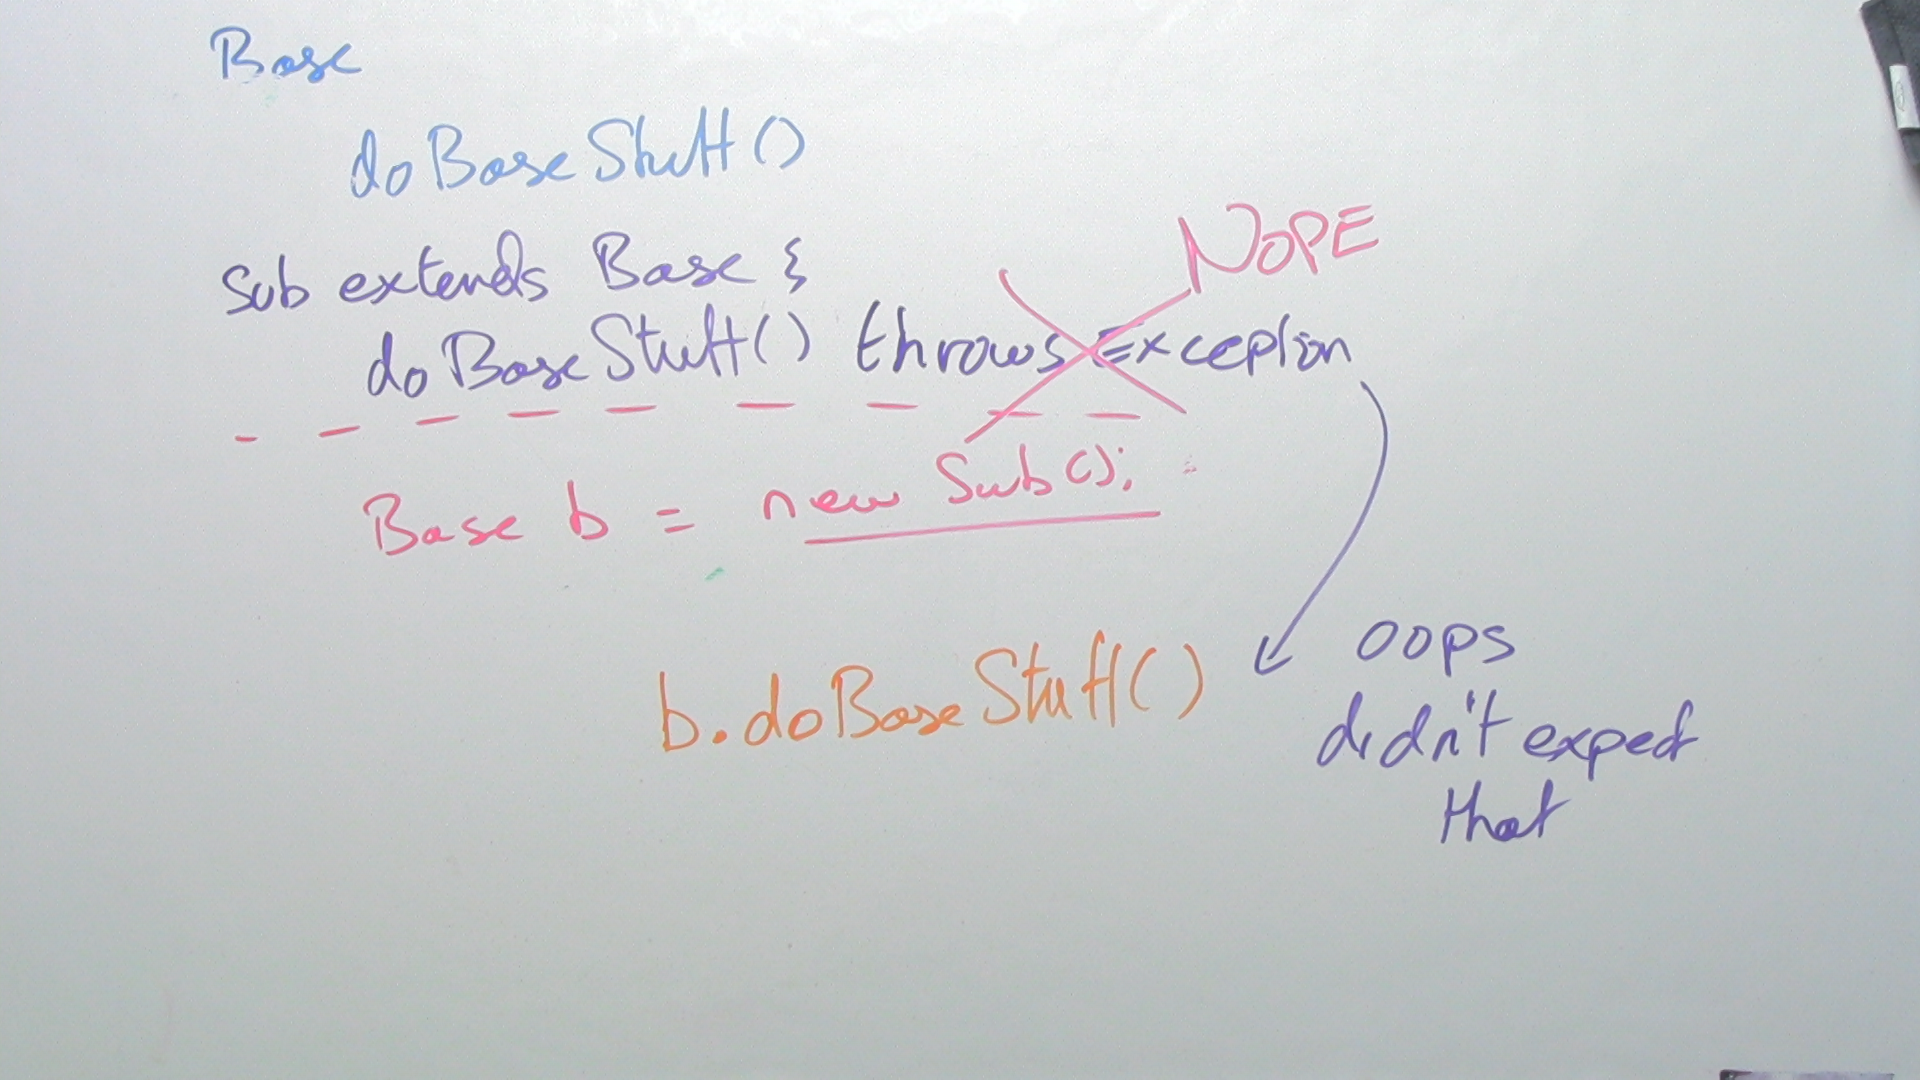 Base
doBaseStuff()
NOPE
Sub extends Base {
doBaseStuff() throws Exception
Base b = new Sub();
b.doBaseStuff()
oops
didn't expect
that